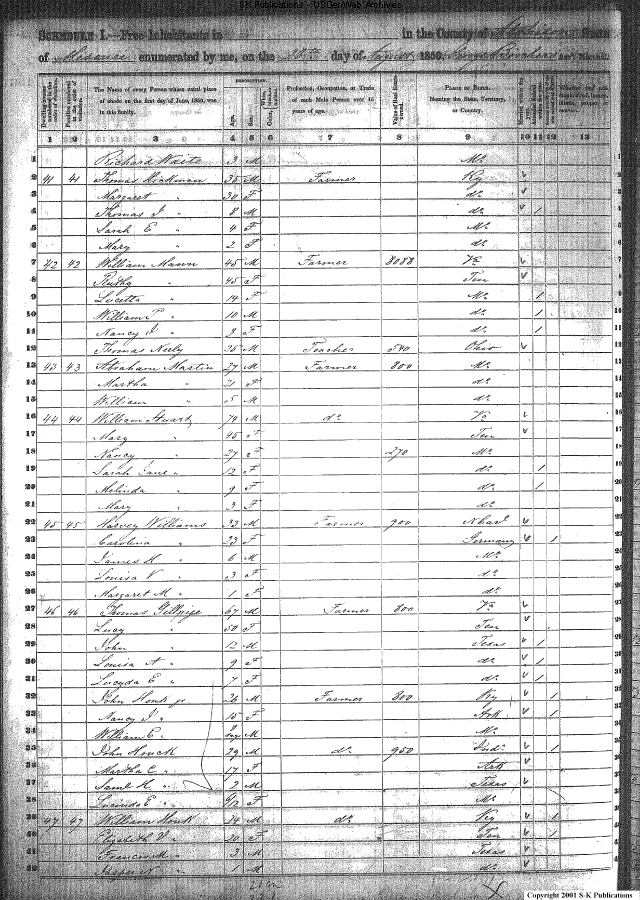 S-K Publications - USGenWeb Archives
SCHEDULE I.—Free Inhabitants in in the County of State
of Missouri enumerated by me, on the 28th day of 1850.
DESCRIPTION.
The Name of every Person whose usual place of abode on the first day of June, 1850, was in this family.
Age. Sex. Color,
Profession, Occupation, or Trade of each Male Person over 15 years of age.
Value of Real Estate owned.
PLACE OF BIRTH. Naming the State, Territory, or Country.
1 2 3 4 5 6 7 8 9 10 11 12 13
1 Richard Waits 3 M Mo
2 41 41 Thomas Hickman 35 M Farmer Ky
3 Margaret " 30 F do
4 Thomas J " 8 M do 1
5 Sarah E " 4 F Mo
6 Mary " 2 F do
7 42 42 William Mann 45 M Farmer 8088 Va
8 Ruthy " 45 F Ten
9 Lucetta " 14 F Mo 1
10 William P " 10 M do 1
11 Nancy J " 8 F do 1
12 Thomas Neely 25 M Teacher 540 Ohio
13 43 43 Abraham Martin 27 M Farmer 800 Mo
14 Martha " 21 F do
15 William " 5 M do
16 44 44 William Stuart 74 M do Va
17 Mary " 45 F Ten
18 Nancy " 27 F 270 Mo
19 Sarah Jane " 12 F do 1
20 Melinda " 9 F do 1
21 Mary " 3 F do
22 45 45 Harvey Williams 33 M Farmer 900 N Car
23 Carolina " 23 F Germany 1
24 James H " 6 M Mo
25 Louisa V " 3 F do
26 Margaret M " 1 F do
27 46 46 Thomas 67 M Farmer 800 Va
28 Lucy " 50 F Ten
29 John " 12 M Texas 1
30 Louisa A " 9 F do 1
31 Lucyda E " 7 F do 1
32 John Honk jr 26 M Farmer 800 Ky 1
33 Nancy J " 15 F Ark 1
34 William E " M Mo
35 John Houck 29 M do 950 Inda 1
36 Martha E " 17 F Ark
37 Saml H " 2 M Texas
38 Lucinda E " F Mo
39 47 47 William Honk 24 M do Ky 1
40 Elizabeth V " 20 F Ten 1
41 Frances M " 3 M Texas
42 " 1 M do
Copyright 2001 S-K Publications